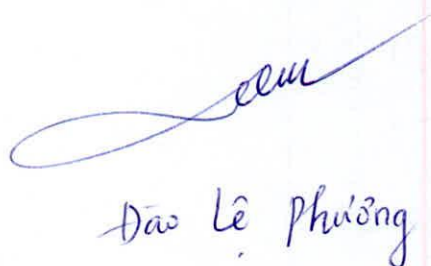 Đào Lê Phương